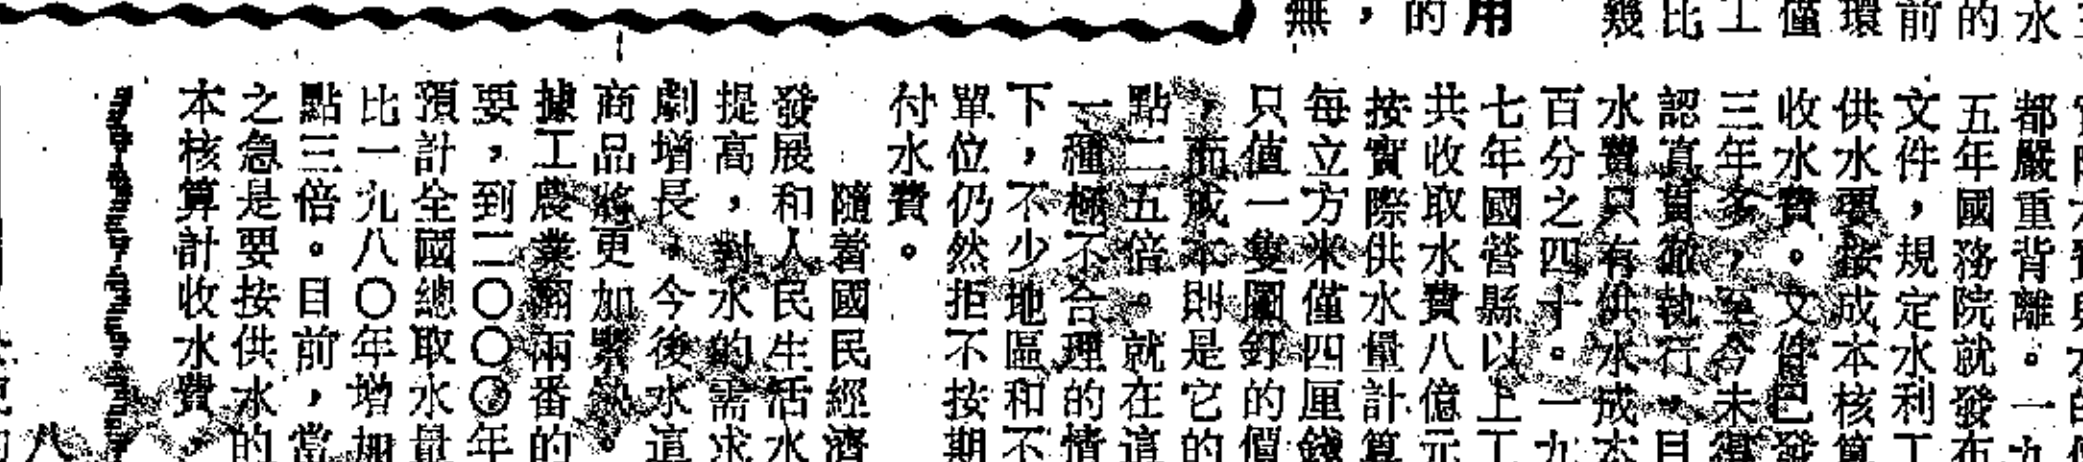 水
的
前
環
僅
工
比
幾
用
的
，
無
都嚴重背離。一九
五年國務院就發布
文件，規定水利工
供水要按成本核算
收水費。文件已發
三年多，至今未得
認真貫徹執行，目
水費只有供水成本
百分之四十。一九
七年國營縣以上工
共收取水費八億元
按實際供水量計算
每立方米僅四厘錢
只值一隻圖釘的價
，而成本則是它的
點二五倍。就在這
一種極不合理的情
下，不少地區和不
單位仍然拒不按期
付水費。
隨着國民經濟
發展和人民生活水
提高，對水的需求
劇增長，今後水這
商品將更加緊缺。
據工農業翻兩番的
要，到二〇〇〇年
預計全國總取水量
比一九八〇年增加
點三倍。目前，當
之急是要按供水的
本核算計收水費，
八